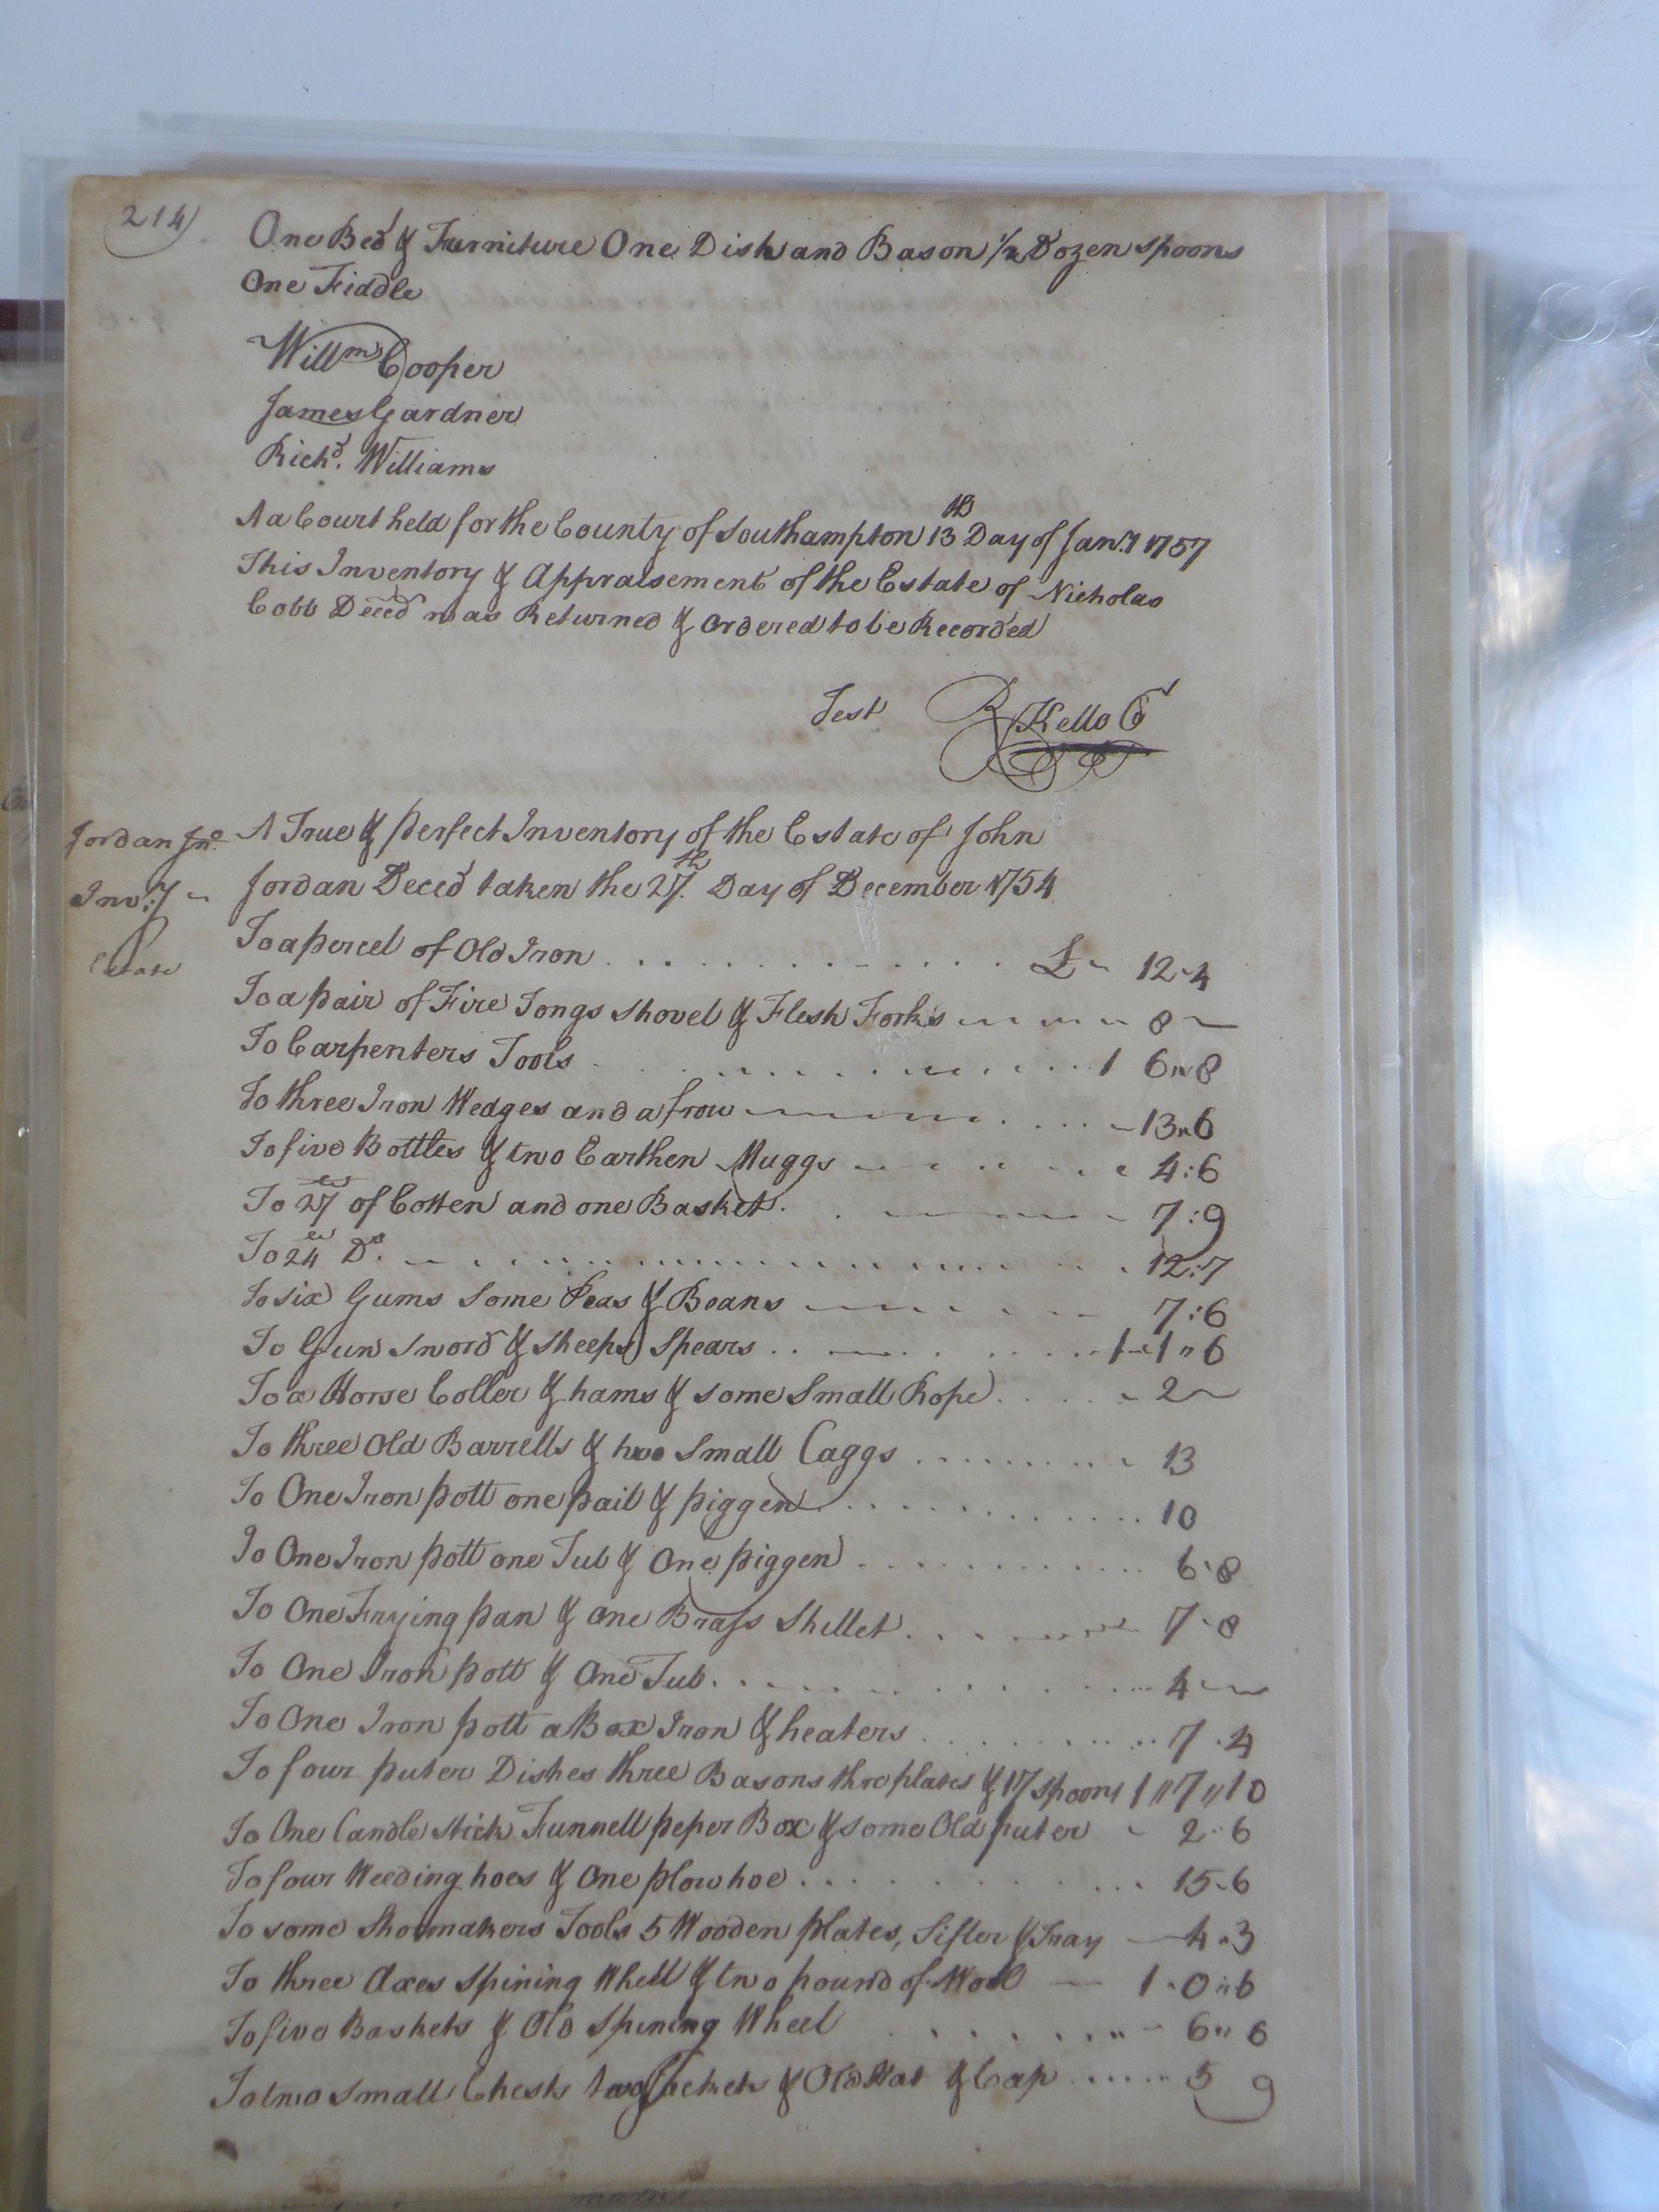 214
One Bed & Furniture One Dish and Bason 1/2 Dozen Spoons
One Fiddle
Willm Cooper
James Gardner
Richd. Williams
A a Court held for the County of Southampton 13th Day of Jany 1757
This Inventory & Appraisement of the Estate of Nicholas
Cobb Deced was Returned & Ordered to be Recorded
Test R Kello Cl
Jordan Jno. A True & perfect Inventory of the Estate of John
Inv:y Jordan Deced taken the 27th. Day of December 1754
Estate
To a percel of Old Iron £ 12-4
To a pair of Fire Tongs Shovel & Flesh Forks 8
To Carpenters Tools 1 6"8
To three Iron Wedges and a frow 13"6
To five Bottles & two Earthen Muggs 4:6
To 27 of Cotten and one Basket 7:9
To 24 Do. 12:7
To six Gums Some Peas & Beans 7:6
To Gun Sword & Sheeps Spears 1-1"6
To a Horse Coller & hams & some Small Rope 2
To three Old Barrells & two Small Caggs 13
To One Iron pott one pail & piggen 10
To One Iron pott one Tub & One piggen 6-8
To One Frying pan & one Brass Skellet 7-8
To One Iron pott & One Tub 4
To One Iron pott a Box Iron & heaters 7-4
To four puter Dishes three Basons thre plates & 17 Spoons 1"17"10
To One Candle Stick Funnell peper Box & some Old puter 2-6
To four Weeding hoes & One plow hoe 15-6
To some Shoemakers Tools 5 Wooden plates, Sifter & Tray 4-3
To three Axes Spining Whell & two pound of Wool 1-0"6
To five Baskets & Old Spining Wheel 6"6
To two Small Chests two Jackets & Old Hat & Cap 5 9